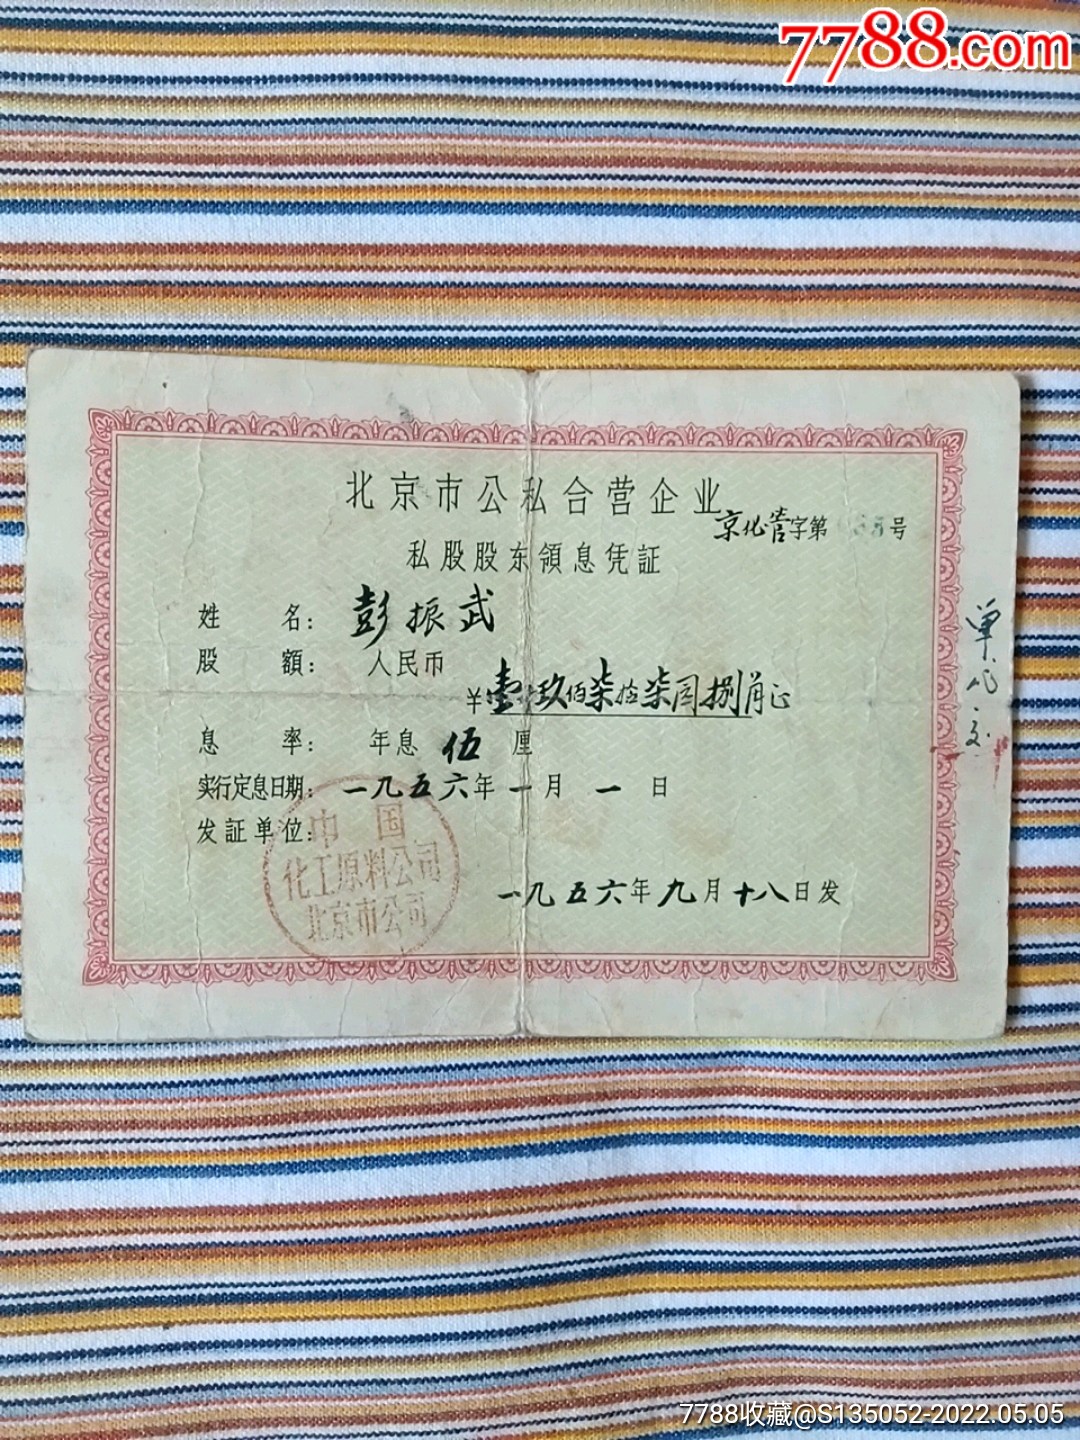 7788.com
北京市公私合营企业
京化营字第 号
私股股东領息凭証
姓 名： 彭振武
股 額： 人民币
￥壹仟玖佰柒拾柒圆捌角正
息 率： 年息 伍 厘
实行定息日期：一九五六年一月一日
发証单位：
中国
化工原料公司
北京市公司
一九五六年九月十八日发
7788收藏@S135052-2022.05.05